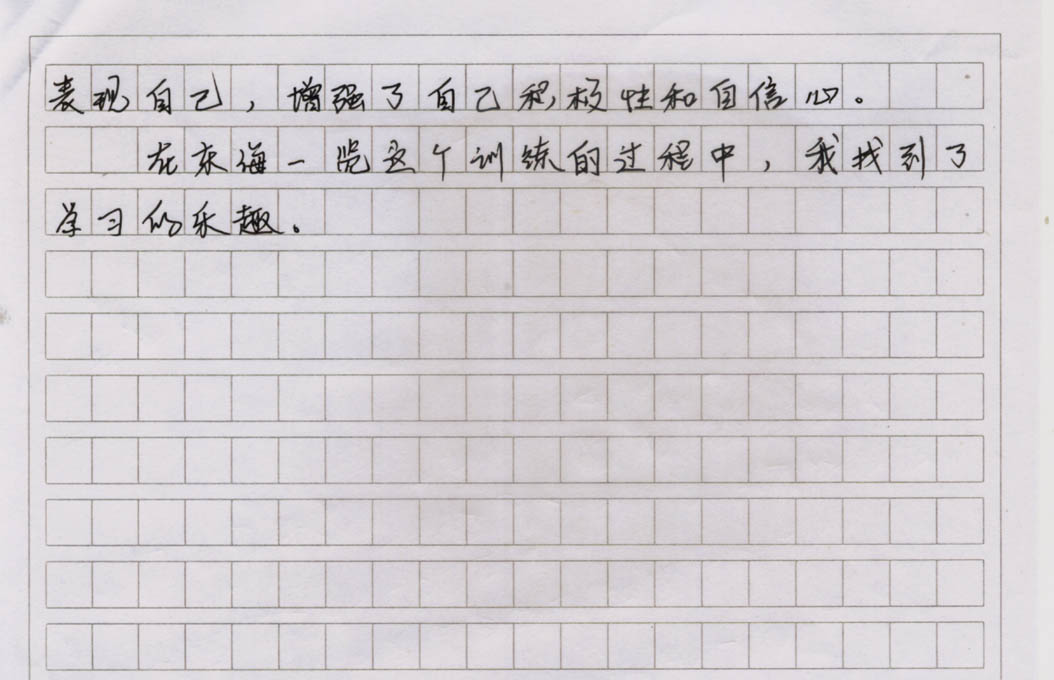 表现自己，增强了自己积极性和自信心。
在东海一览这个训练的过程中，我找到了
学习的乐趣。